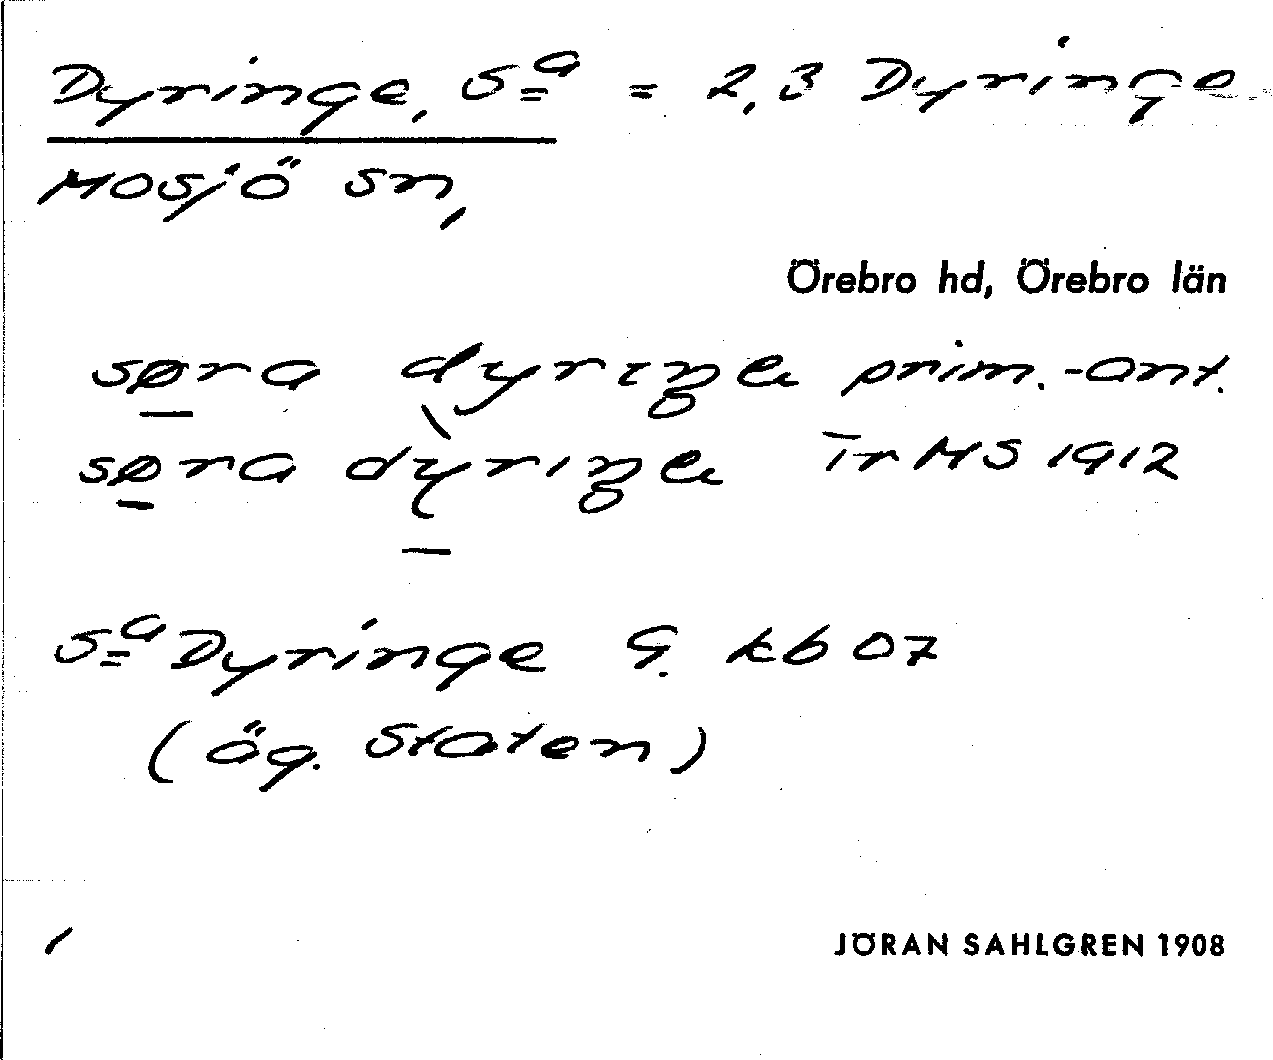 Dyringe, Sᵃ = 2,3 Dyringe
Mosjö sn,
Örebro hd, Örebro län
søra dyrıŋe prim.-ant.
søra dyrıŋe Tr MS 1912
Sᵃ Dyringe G. kb 07
(äg. Staten)
1
JÖRAN SAHLGREN 1908